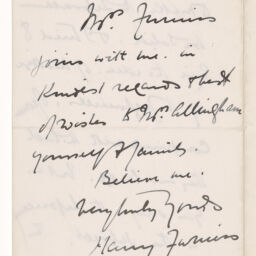 Mrs. Furniss
joins with me in
kindest regards & best
of wishes to Mrs. Allingham
yourself & family.
Believe me.
Very truly yours
Harry Furniss